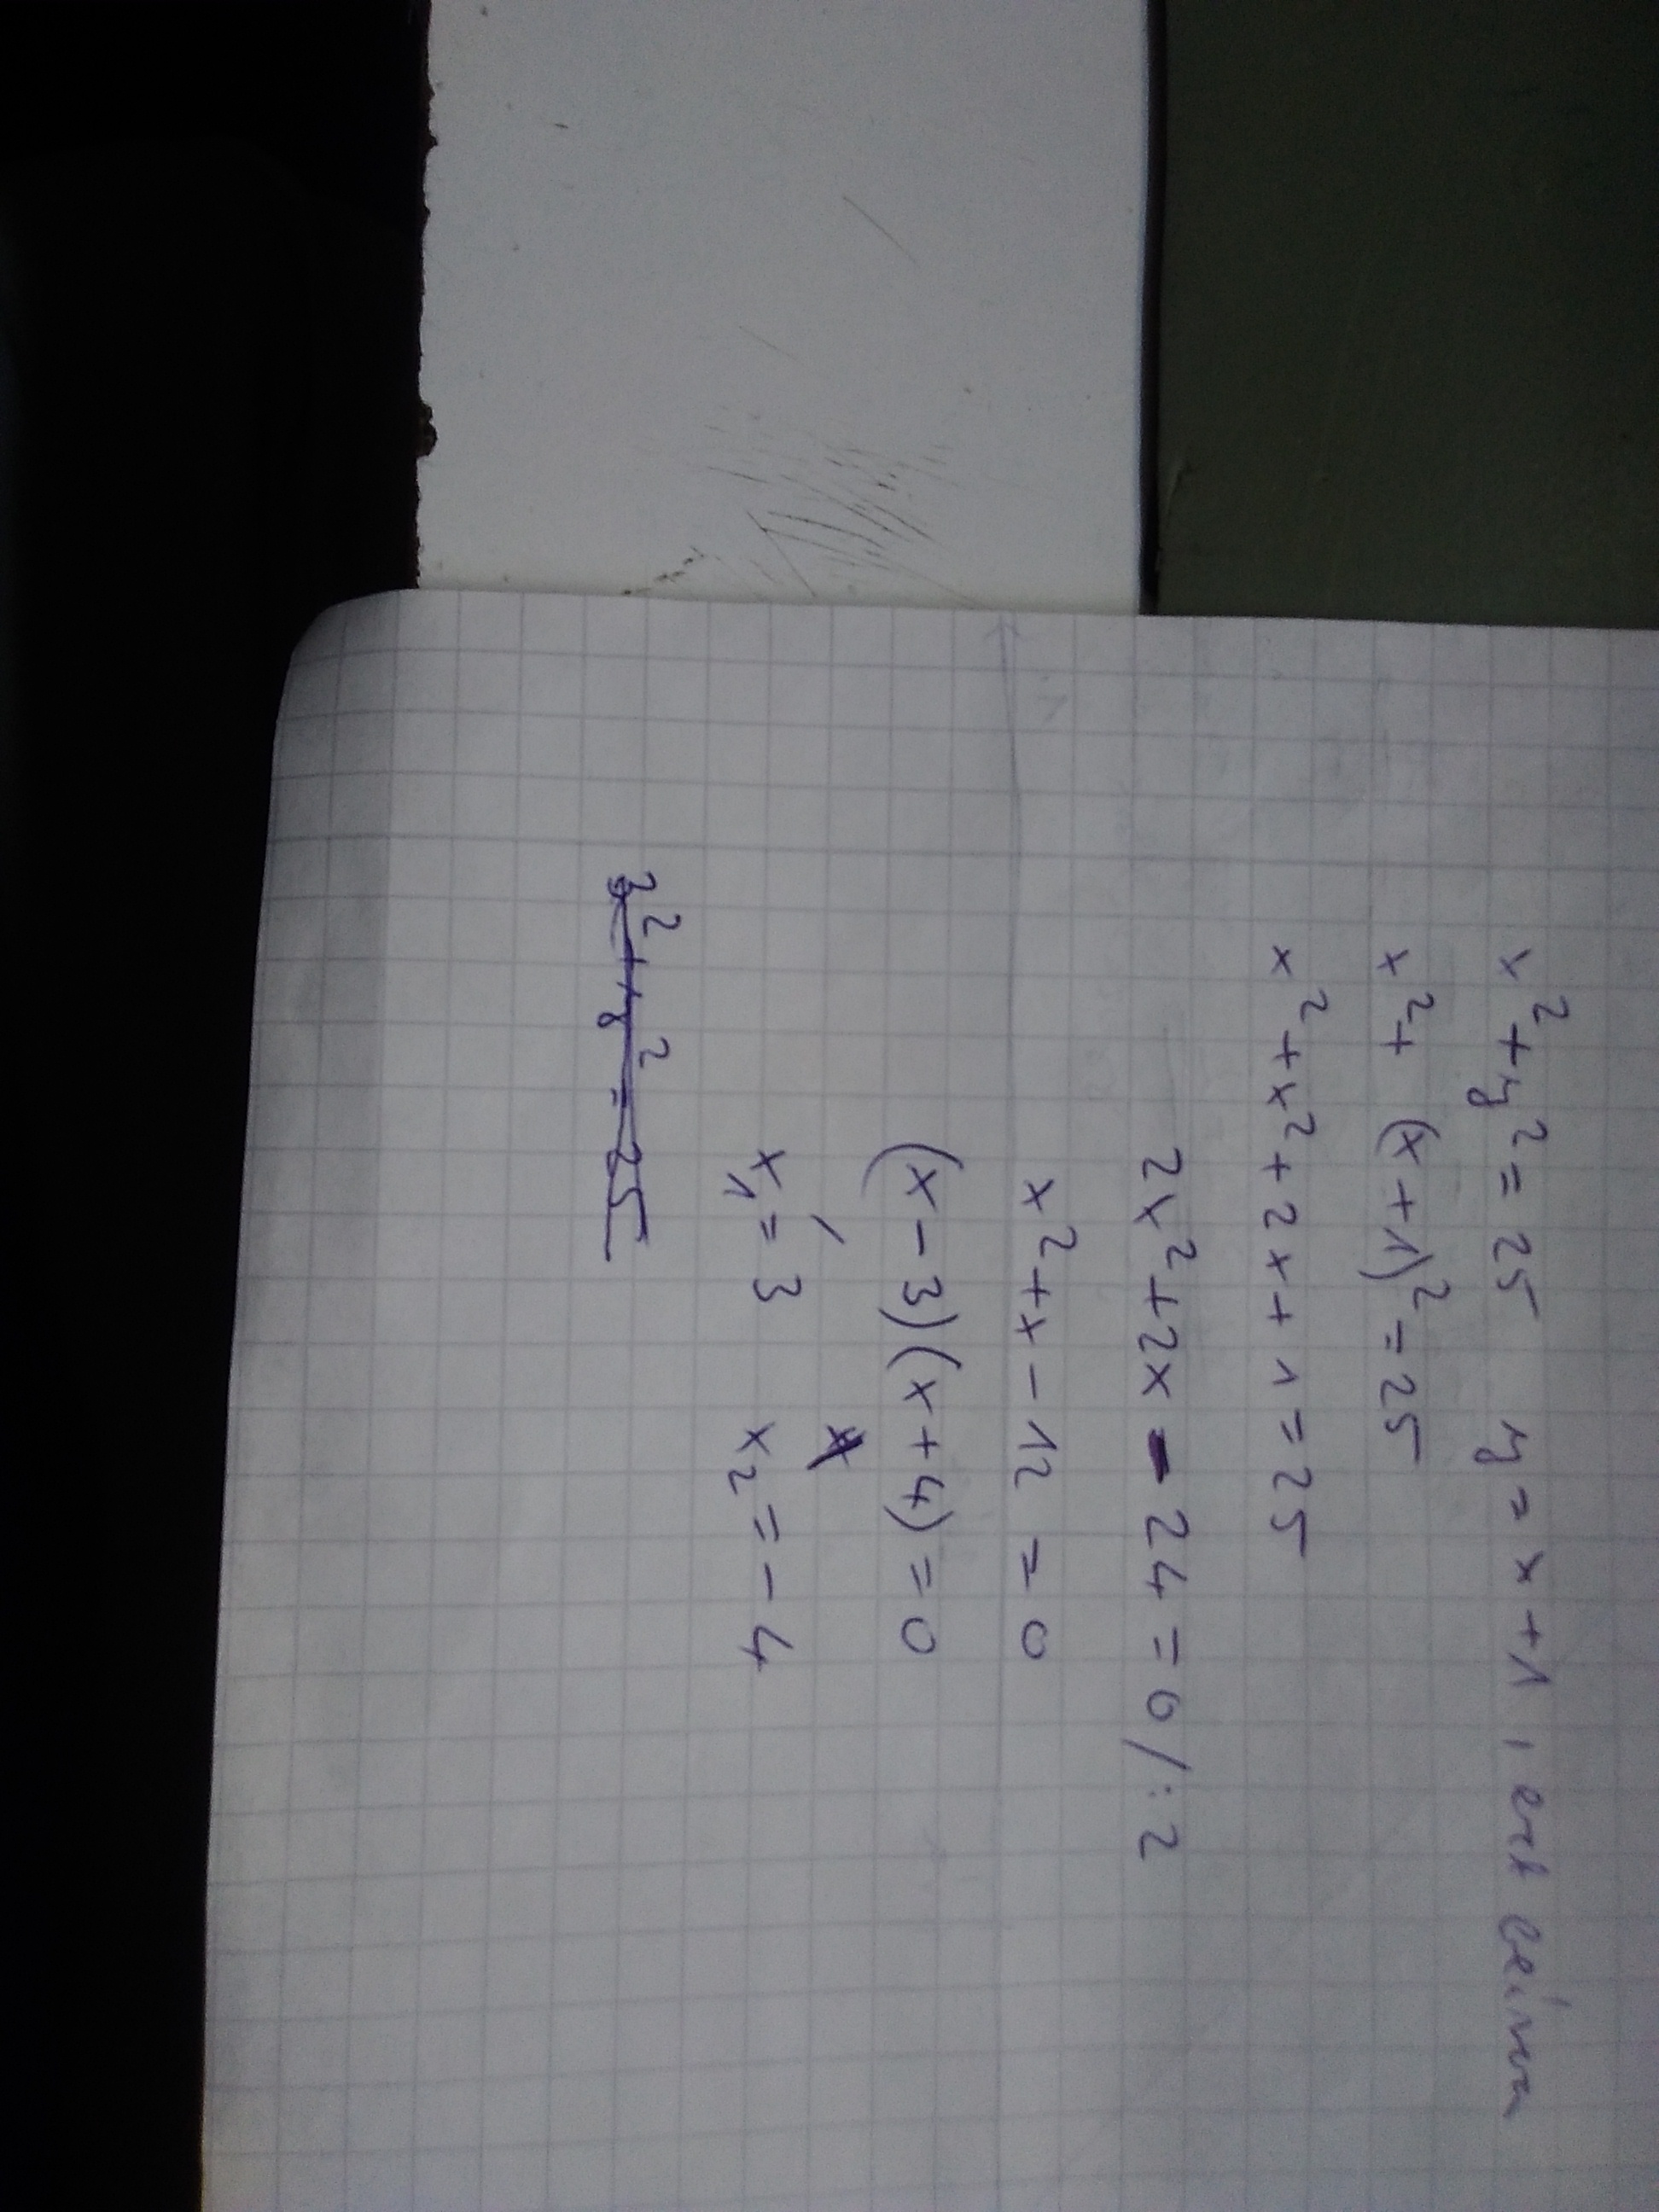 x² + y² = 25 y = x + 1,
x² + (x + 1)² = 25
x² + x² + 2x + 1 = 25
2x² + 2x - 24 = 0 /: 2
x² + x - 12 = 0
(x - 3)(x + 4) = 0
x₁ = 3 x₂ = - 4
3² + y² = 25